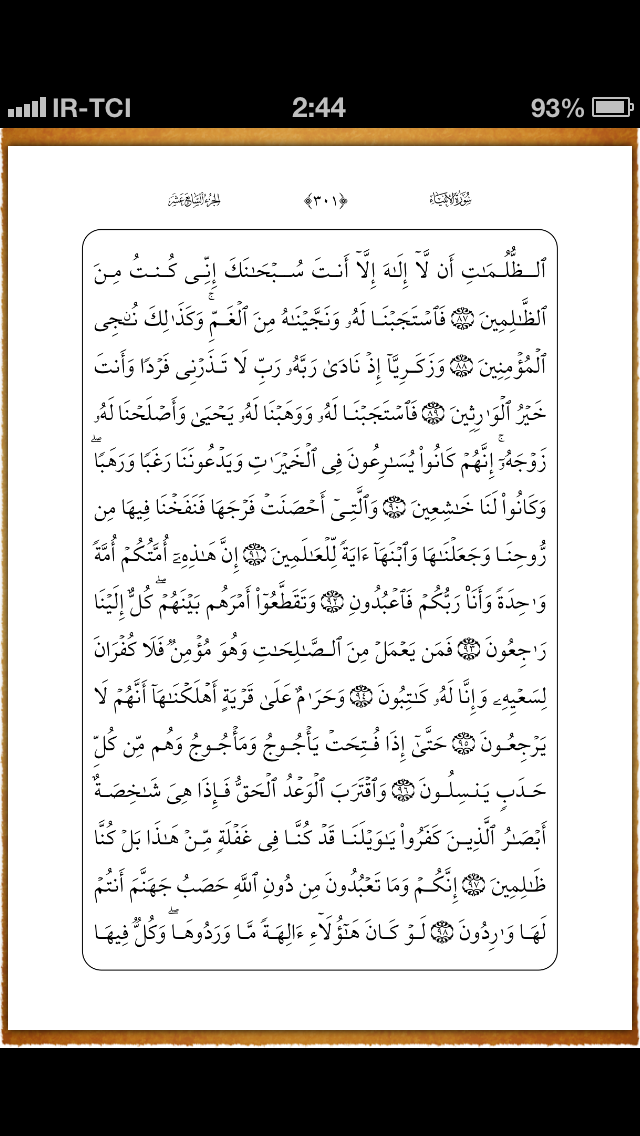 IR-TCI 2:44 93%
سُورَةُ الأَنبِيَاء ﴿٣٠١﴾ الجُزءُ السَّابِعَ عَشَرَ
ٱلظُّلُمَٰتِ أَن لَّآ إِلَٰهَ إِلَّآ أَنتَ سُبۡحَٰنَكَ إِنِّى كُنتُ مِنَ
ٱلظَّٰلِمِينَ ٨٧ فَٱسۡتَجَبۡنَا لَهُۥ وَنَجَّيۡنَٰهُ مِنَ ٱلۡغَمِّۚ وَكَذَٰلِكَ نُۨجِى
ٱلۡمُؤۡمِنِينَ ٨٨ وَزَكَرِيَّآ إِذۡ نَادَىٰ رَبَّهُۥ رَبِّ لَا تَذَرۡنِى فَرۡدًا وَأَنتَ
خَيۡرُ ٱلۡوَٰرِثِينَ ٨٩ فَٱسۡتَجَبۡنَا لَهُۥ وَوَهَبۡنَا لَهُۥ يَحۡيَىٰ وَأَصۡلَحۡنَا لَهُۥ
زَوۡجَهُۥٓۚ إِنَّهُمۡ كَانُواْ يُسَٰرِعُونَ فِى ٱلۡخَيۡرَٰتِ وَيَدۡعُونَنَا رَغَبًا وَرَهَبًاۖ
وَكَانُواْ لَنَا خَٰشِعِينَ ٩٠ وَٱلَّتِىٓ أَحۡصَنَتۡ فَرۡجَهَا فَنَفَخۡنَا فِيهَا مِن
رُّوحِنَا وَجَعَلۡنَٰهَا وَٱبۡنَهَآ ءَايَةً لِّلۡعَٰلَمِينَ ٩١ إِنَّ هَٰذِهِۦٓ أُمَّتُكُمۡ أُمَّةً
وَٰحِدَةً وَأَنَا۠ رَبُّكُمۡ فَٱعۡبُدُونِ ٩٢ وَتَقَطَّعُوٓاْ أَمۡرَهُم بَيۡنَهُمۡۖ كُلٌّ إِلَيۡنَا
رَٰجِعُونَ ٩٣ فَمَن يَعۡمَلۡ مِنَ ٱلصَّٰلِحَٰتِ وَهُوَ مُؤۡمِنٌ فَلَا كُفۡرَانَ
لِسَعۡيِهِۦ وَإِنَّا لَهُۥ كَٰتِبُونَ ٩٤ وَحَرَٰمٌ عَلَىٰ قَرۡيَةٍ أَهۡلَكۡنَٰهَآ أَنَّهُمۡ لَا
يَرۡجِعُونَ ٩٥ حَتَّىٰٓ إِذَا فُتِحَتۡ يَأۡجُوجُ وَمَأۡجُوجُ وَهُم مِّن كُلِّ
حَدَبٍ يَنسِلُونَ ٩٦ وَٱقۡتَرَبَ ٱلۡوَعۡدُ ٱلۡحَقُّ فَإِذَا هِىَ شَٰخِصَةٌ
أَبۡصَٰرُ ٱلَّذِينَ كَفَرُواْ يَٰوَيۡلَنَا قَدۡ كُنَّا فِى غَفۡلَةٍ مِّنۡ هَٰذَا بَلۡ كُنَّا
ظَٰلِمِينَ ٩٧ إِنَّكُمۡ وَمَا تَعۡبُدُونَ مِن دُونِ ٱللَّهِ حَصَبُ جَهَنَّمَ أَنتُمۡ
لَهَا وَٰرِدُونَ ٩٨ لَوۡ كَانَ هَٰٓؤُلَآءِ ءَالِهَةً مَّا وَرَدُوهَاۖ وَكُلٌّ فِيهَا